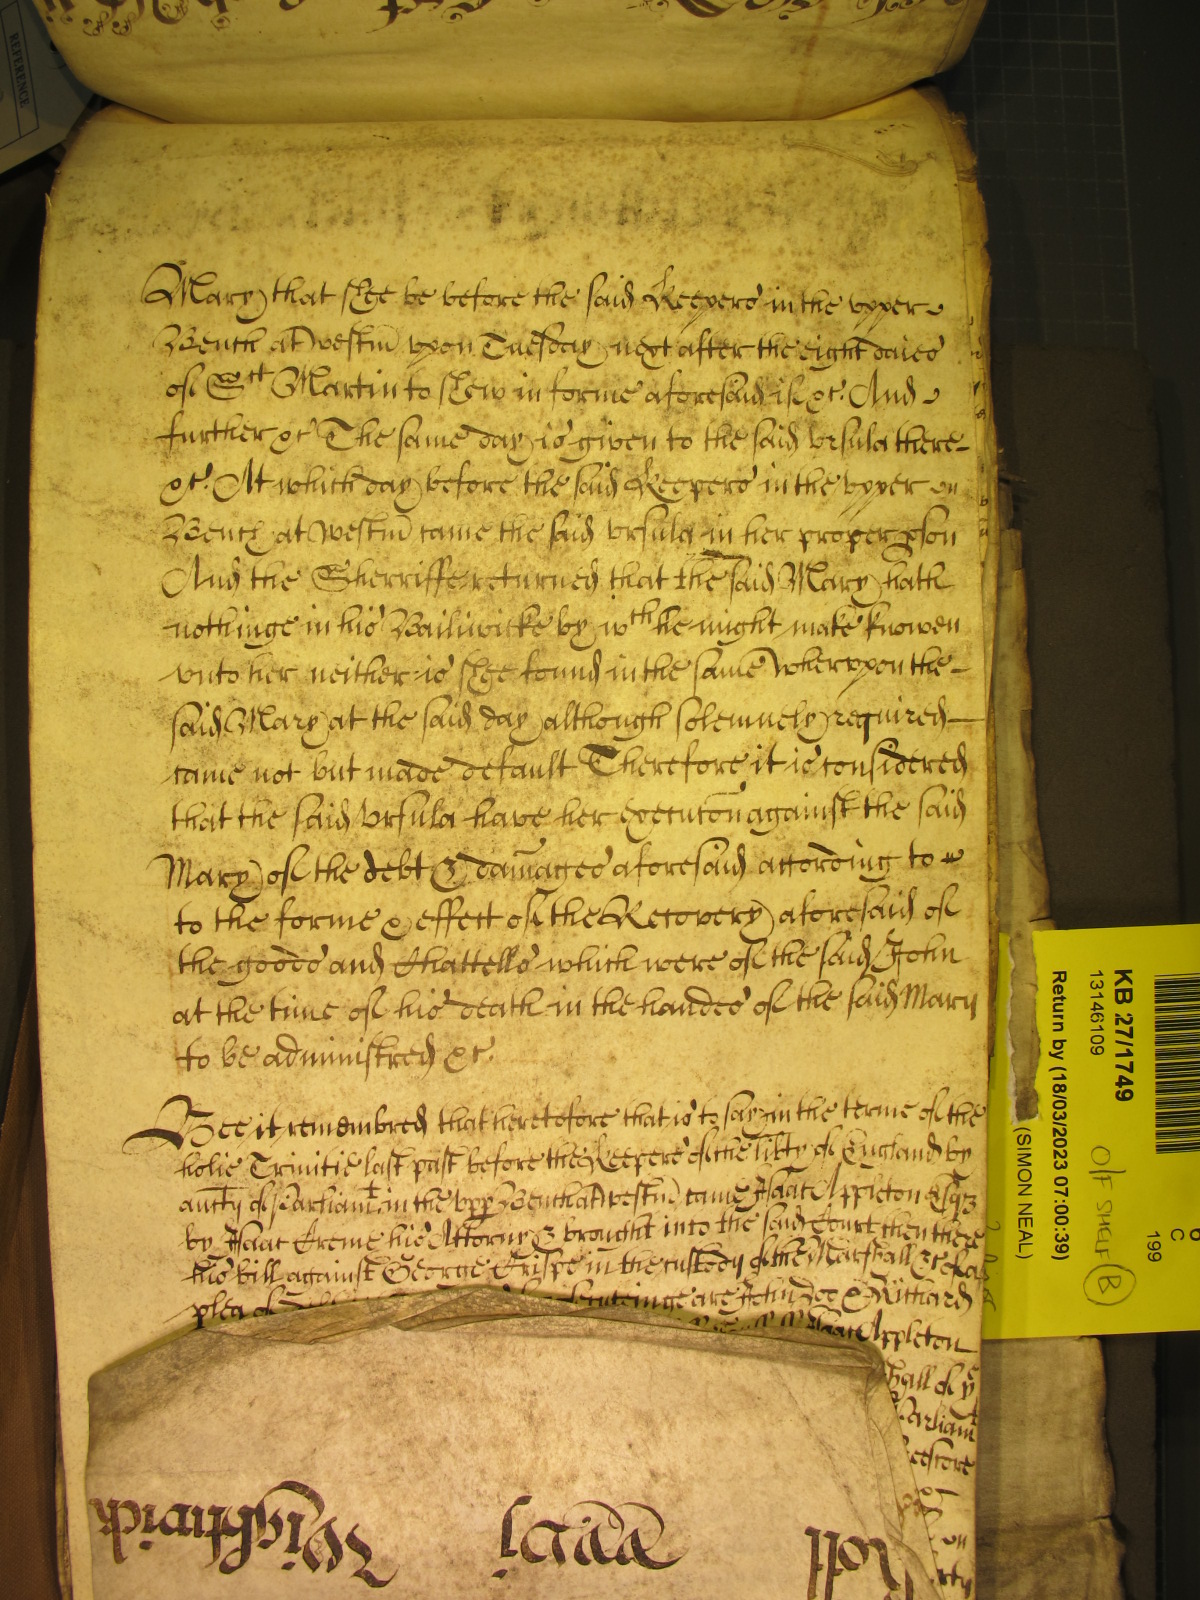 Mary that shee be before the said Keepers in the vpper
Bench at Westm vpon Tuesday next after the eight daies
of Sct Martin to shew in forme aforesaid if &c. And
further &c The same day is given to the said Vrsula there
&c. At which day before the said Keepers in the vpper
Bench at Westm came the said Vrsula in her proper pson
And the Sherriffe returned that the said Mary hath
nothinge in his Bailiwicke by wth he might make knowen
vnto her neither is shee found in the same Whervpon the
said Mary at the said day although solemnely required
came not but made default Therefore it is considered
that the said Vrsula have her Execucon against the said
Mary of the debt & damages aforesaid according to
to the forme & effect of the Recovery aforesaid of
the goods and Chattells which were of the said John
at the time of his death in the handes of the said Mary
to be administred &c.
Bee it remembred that heretofore that is to say in the terme of the
holie Trinitie last past before the Keepers of the libty of England by
autty of Parliamt in the vpp Bench at Westm came Isaac Appleton Esqz
by Isaac Creme his Attorny & brought into the said Court then there
his bill against George Crispe in the custody of the Marshall &c of a
plea of are John Doe & Richard
Isaac Appleton
hall of ye
Parliamt
Roll
Wightwick
REFERENCE
KB 27/1749
13146109
Return by (18/03/2023 07:00:39)
(SIMON NEAL)
O/F SHELF B
C
199